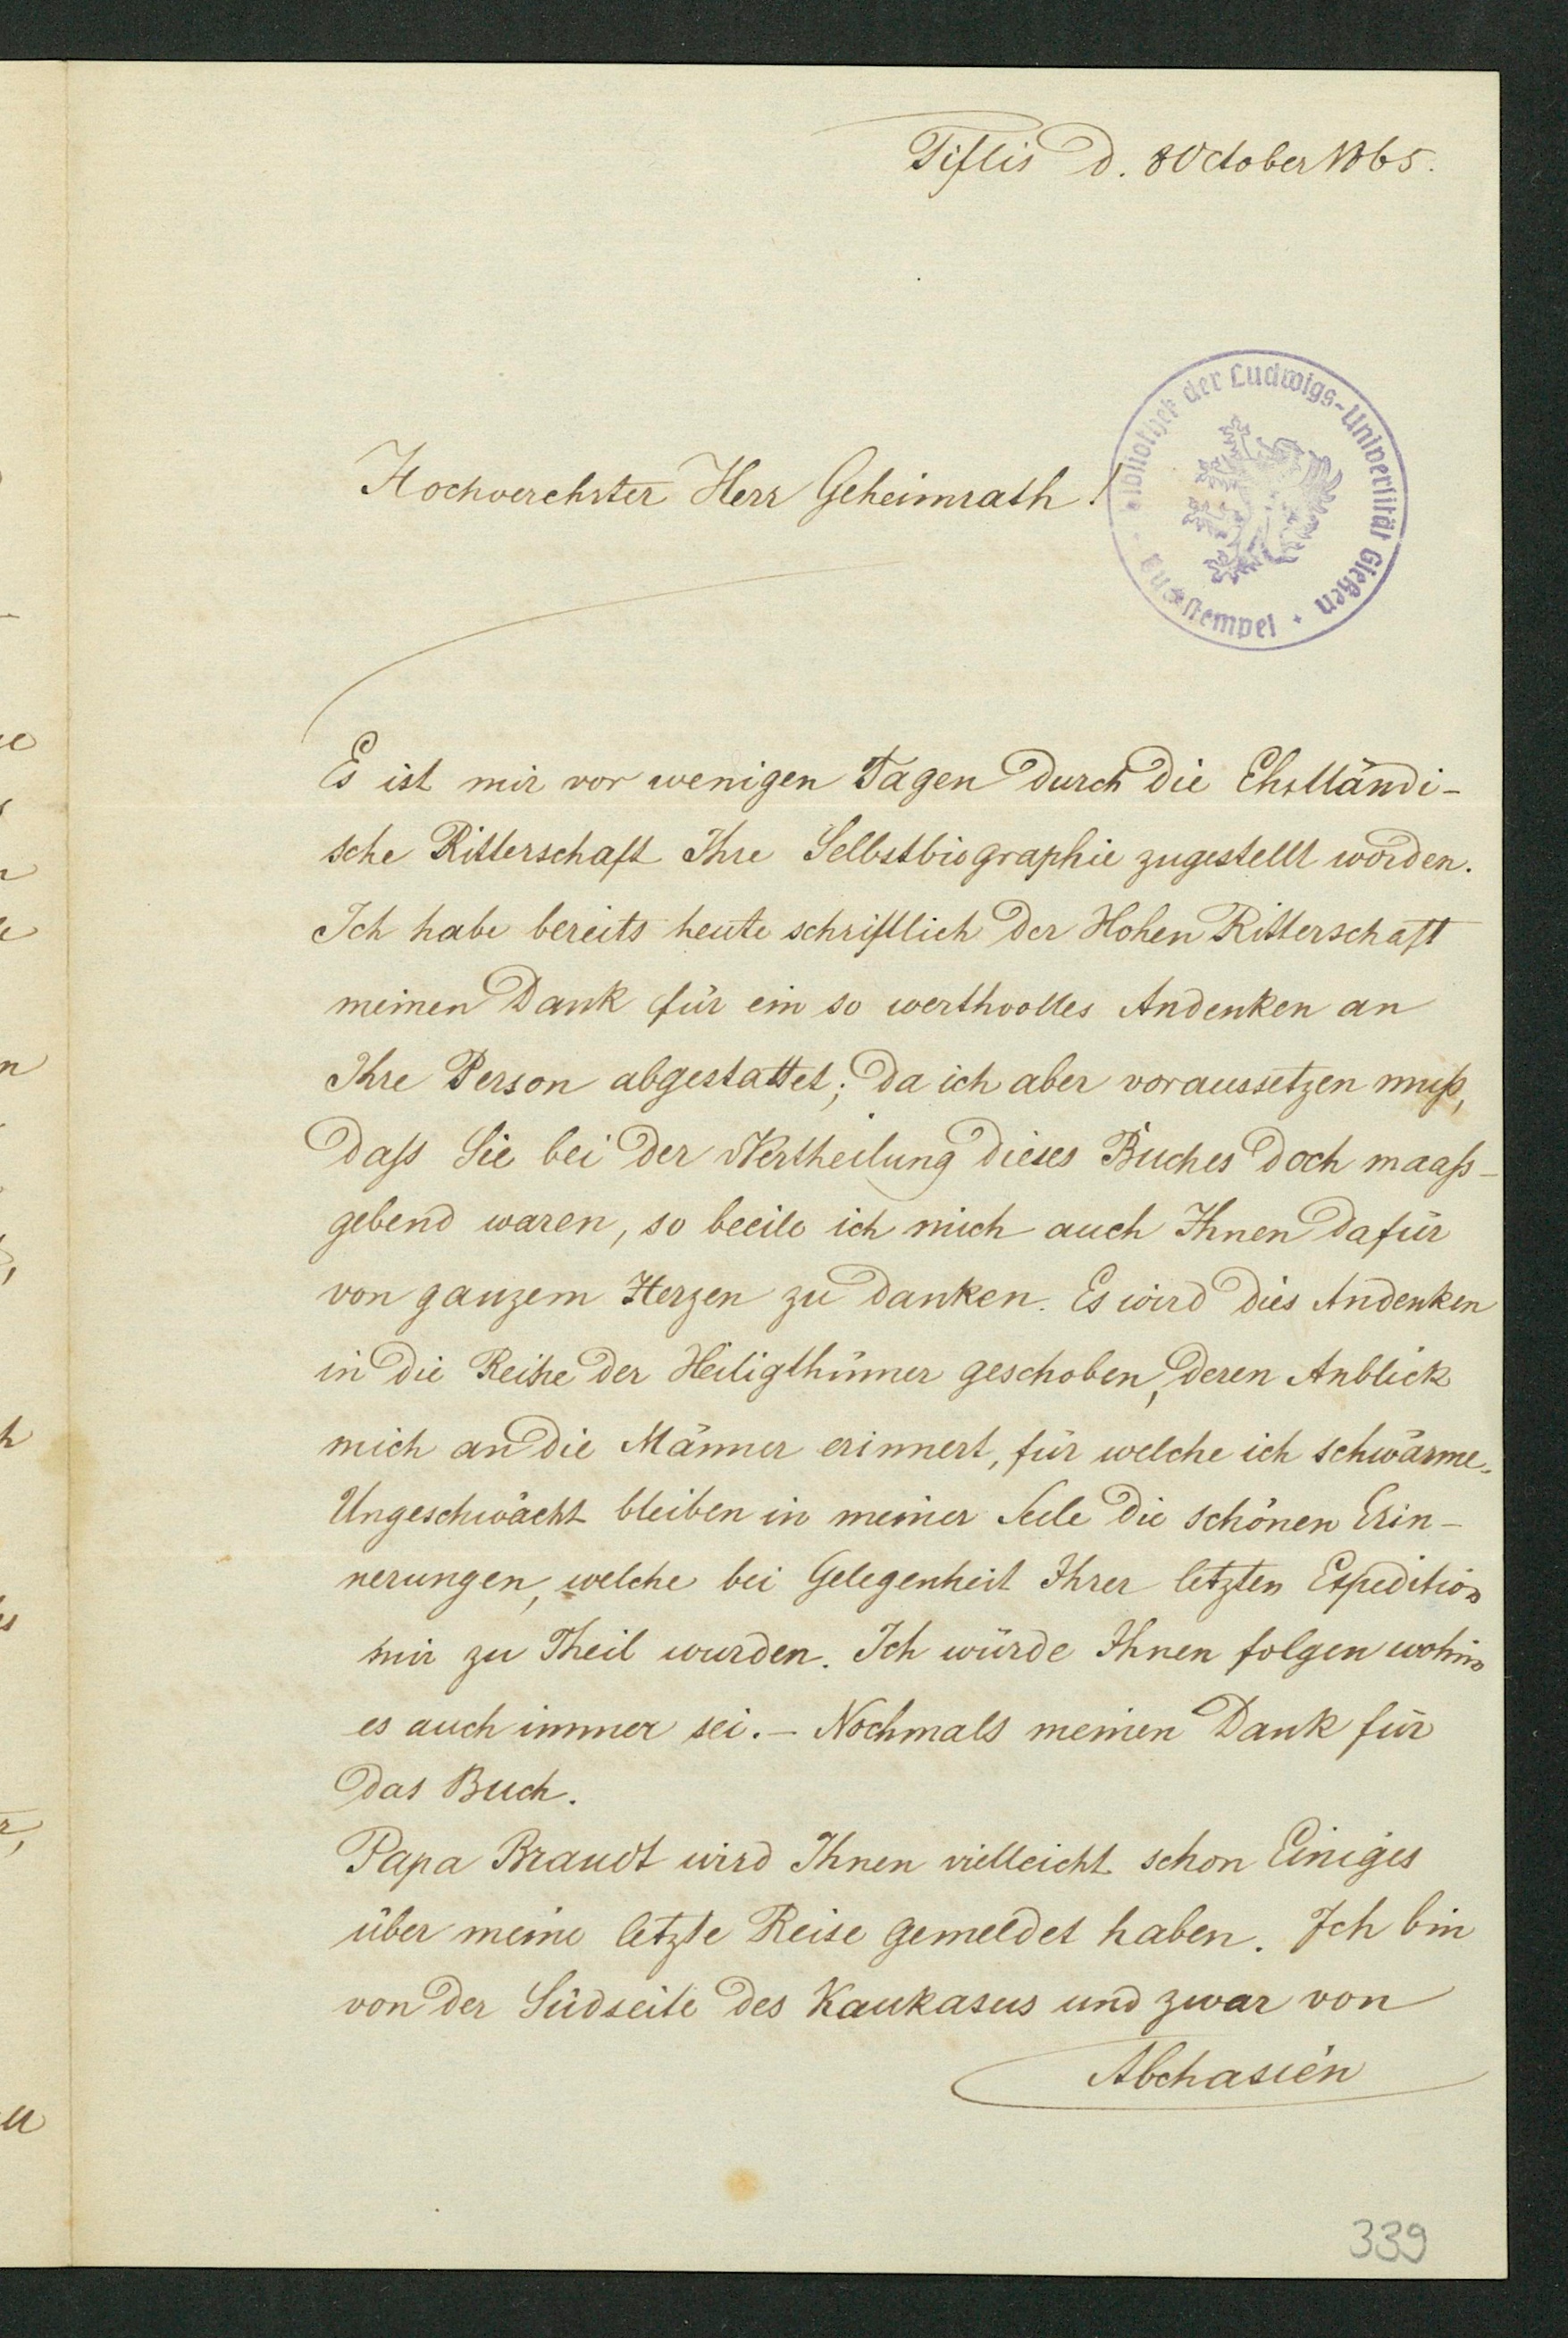 Tiflis d. 8 October 1865.
Bibliothek der Ludwigs-Universität Gießen
Hochverehrter Herr Geheimrath!
Es ist mir vor wenigen Tagen durch die Ehstländi-
sche Ritterschaft Ihre Selbstbiographie zugestellt worden.
Ich habe bereits heute schriftlich der Hohen Ritterschaft
meinen Dank für ein so werthvolles Andenken an
Ihre Person abgestattet; da ich aber voraussetzen muß,
daß Sie bei der Vertheilung dieses Buches doch maaß-
gebend waren, so beeile ich mich auch Ihnen dafür
von ganzem Herzen zu danken. Es wird dies Andenken
in die Reihe der Heiligthümer geschoben, deren Anblick
mich an die Männer erinnert, für welche ich schwärme.
Ungeschwächt bleiben in meiner Seele die schönen Erin-
nerungen, welche bei Gelegenheit Ihrer letzten Expedition
mir zu Theil wurden. Ich würde Ihnen folgen wohin
es auch immer sei. – Nochmals meinen Dank für
das Buch.
Papa Brandt wird Ihnen vielleicht schon Einiges
über meine letzte Reise gemeldet haben. Ich bin
von der Südseite des Kaukasus und zwar von
Abchasien
339